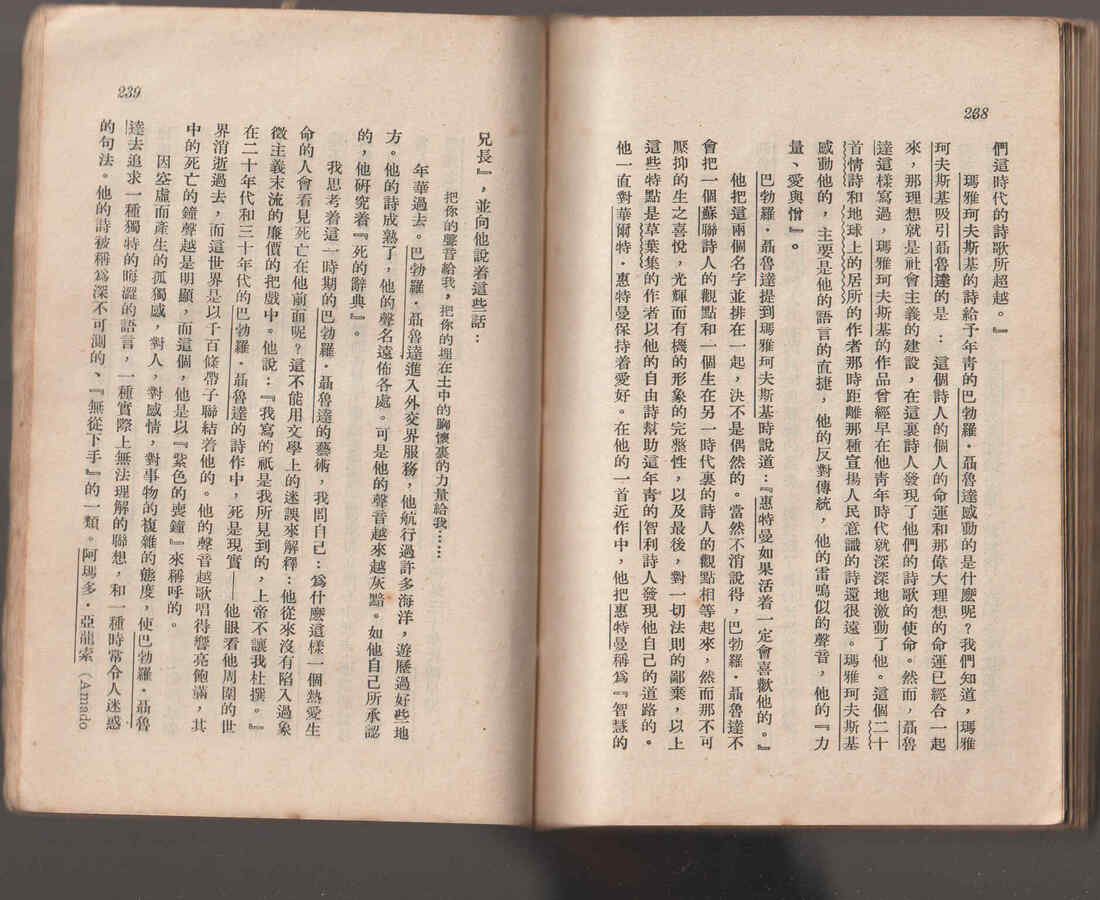 268
們這時代的詩歌所超越。』
瑪雅珂夫斯基的詩給予年青的巴勃羅·聶魯達感動的是什麽呢？我們知道，瑪雅
珂夫斯基吸引聶魯達的是：這個詩人的個人的命運和那偉大理想的命運已經合一起
來，那理想就是社會主義的建設，在這裏詩人發現了他們的詩歌的使命。然而，聶魯
達這樣寫過，瑪雅珂夫斯基的作品曾經早在他青年時代就深深地激動了他。這個二十
首情詩和地球上的居所的作者那時距離那種宣揚人民意識的詩還很遠。瑪雅珂夫斯基
感動他的，主要是他的語言的直捷，他的反對傳統，他的雷鳴似的聲音，他的『力
量、愛與憎』。
巴勃羅·聶魯達提到瑪雅珂夫斯基時說道：『惠特曼如果活着一定會喜歡他的。』
他把這兩個名字並排在一起，決不是偶然的。當然不消說得，巴勃羅·聶魯達不
會把一個蘇聯詩人的觀點和一個生在另一時代裏的詩人的觀點相等起來，然而那不可
壓抑的生之喜悅，光輝而有機的形象的完整性，以及最後，對一切法則的鄙棄，以上
這些特點是草葉集的作者以他的自由詩幫助這年青的智利詩人發現他自己的道路的。
他一直對華爾特·惠特曼保持着愛好。在他的一首近作中，他把惠特曼稱爲『智慧的
239
兄長』，並向他說着這些話：
把你的聲音給我，把你的埋在土中的胸懷裏的力量給我……
年華過去。巴勃羅·聶魯達進入外交界服務，他航行過許多海洋，遊歷過好些地
方。他的詩成熟了，他的聲名遠佈各處。可是他的聲音越來越灰黯。如他自己所承認
的，他研究着『死的辭典』。
我思考着這一時期的巴勃羅·聶魯達的藝術，我問自己：爲什麽這樣一個熱愛生
命的人會看見死亡在他前面呢？這不能用文學上的迷誤來解釋：他從來沒有陷入過象
徵主義末流的廉價的把戲中。他說：『我寫的祇是我所見到的，上帝不讓我杜撰。』
在二十年代和三十年代的巴勃羅·聶魯達的詩作中，死是現實——他眼看他周圍的世
界消逝過去，而這世界是以千百條帶子聯結着他的。他的聲音越歌唱得響亮飽滿，其
中的死亡的鐘聲越是明顯，而這個，他是以『紫色的喪鐘』來稱呼的。
因空虛而產生的孤獨感，對人，對感情，對事物的複雜的態度，使巴勃羅·聶魯
達去追求一種獨特的晦澀的語言，一種實際上無法理解的聯想，和一種時常令人迷惑
的句法。他的詩被稱爲深不可測的、『無從下手』的一類。阿瑪多·亞龍索（Amado